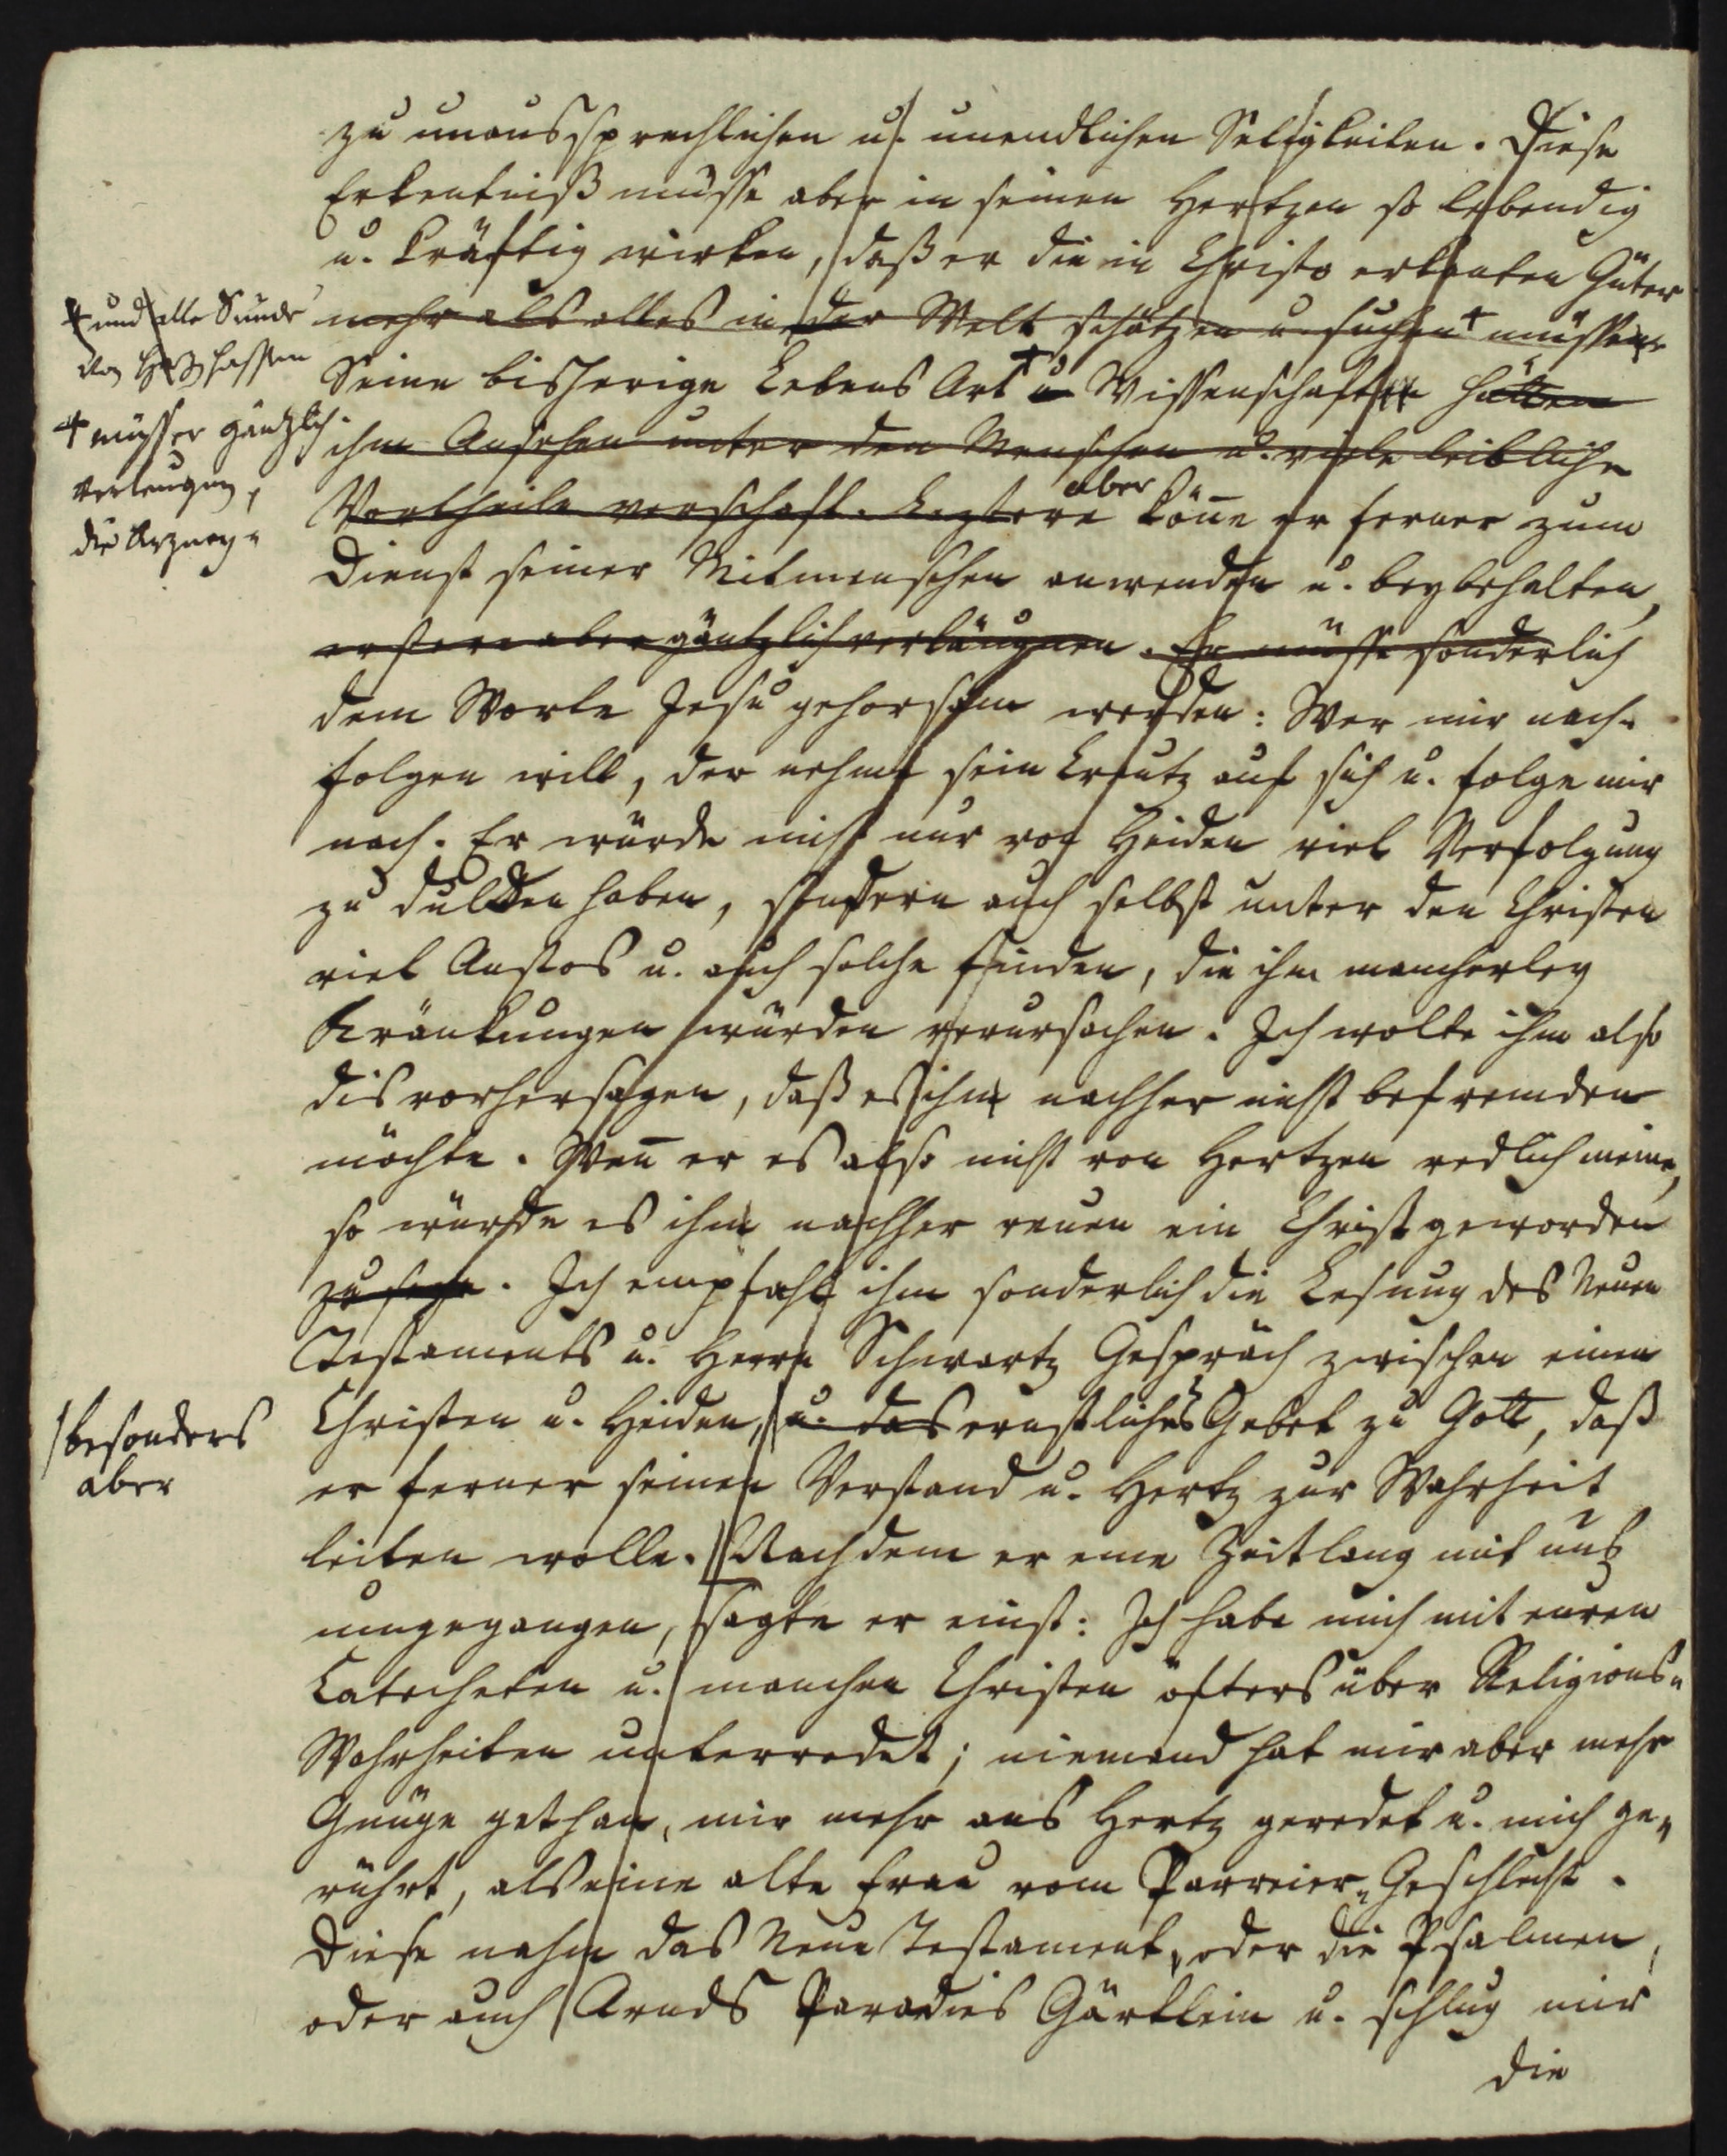 zu unaussprechlichen u. unendlichen Seligkeiten. Diese
Erkentniß müsse aber in seinen Hertzen so lebendig
u. kräftig wirken, daß er die in Christo erkanten Güter
mehr als alles in der Welt schätzen u. suchen + müssen.
+ und alle Sünde
von Hertz hassen
Seine bisherige Lebens Art + u Wissenschaften hätten
+ müsse er gäntzlich
verleugnen,
die Arzney-
ihm Ansehen unter den Menschen u. viele leibliche
Vortheile verschaft. Leztere aber könne er ferner zum
Dienst seiner Mitmenschen anwenden u. beybehalten,
erstere aber gäntzlich verläugnen. Er müsse sonderlich
dem Worte Jesu gehorsam werden: Wer mir nach-
folgen will, der nehme sein Creutz auf sich u. folge mir
nach. Er würde nicht nur von Heiden viel Verfolgung
zu dulden haben, sondern auch selbst unter den Christen
viel Anstos u. auch solche finden, die ihm mancherley
Kränkungen würden verursachen. Ich wolte ihm also
dis vorhersagen, daß es ihm nachher nicht befremden
möchte. Wen̄ er es also nicht von Hertzen redlich meine,
so würde es ihm nachher reuen ein Christ geworden
zu seyn. Ich empfahl ihm sonderlich die Lesung des Neuen
Testaments u. Herrn Schwartz Gespräch zwischen einen
Christen u. Heiden, u. das ernstliches Gebet zu Gott, daß
besonders
aber
er ferner seinen Verstand u. Hertz zur Wahrheit
leiten wolle. Nachdem er eine Zeitlang mit uns
umgegangen, sagte er einst: Ich habe mich mit euren
Catecheten u. manchen Christen öfters über Religions-
Wahrheiten unterredet; niemand hat mir aber mehr
Gnüge gethan, mir mehr ans Hertz geredet u. mich ge-
rührt, als eine alte Frau vom Parreier-Geschlecht.
Diese nahm das Neue Testament, oder die Psalmen,
oder auch Arnds Paradies Gärtlein u. schlug mir
die